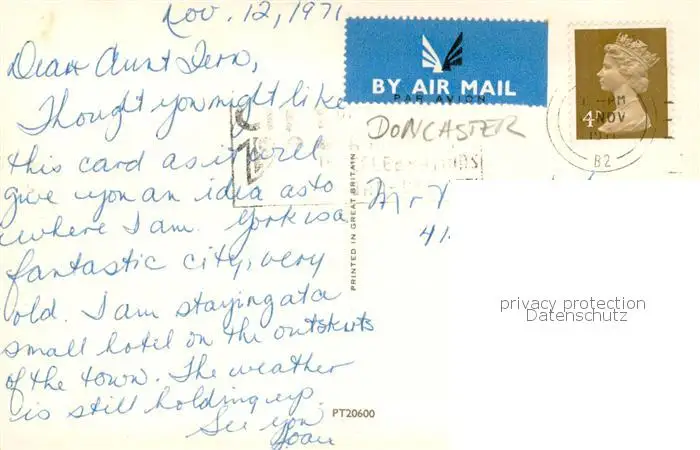 Nov. 12, 1971
Dear Aunt Fern,
Thought you might like
this card as it will
give you an idea as to
where I am. York is a
fantastic city, very
old. I am staying at a
small hotel on the outskirts
of the town. The weather
is still holding up.
See you
Joan
BY AIR MAIL
PAR AVION
DONCASTER
4
PM
NOV
197
82
PRINTED IN GREAT BRITAIN
Mr
41
privacy protection
Datenschutz
PT20600